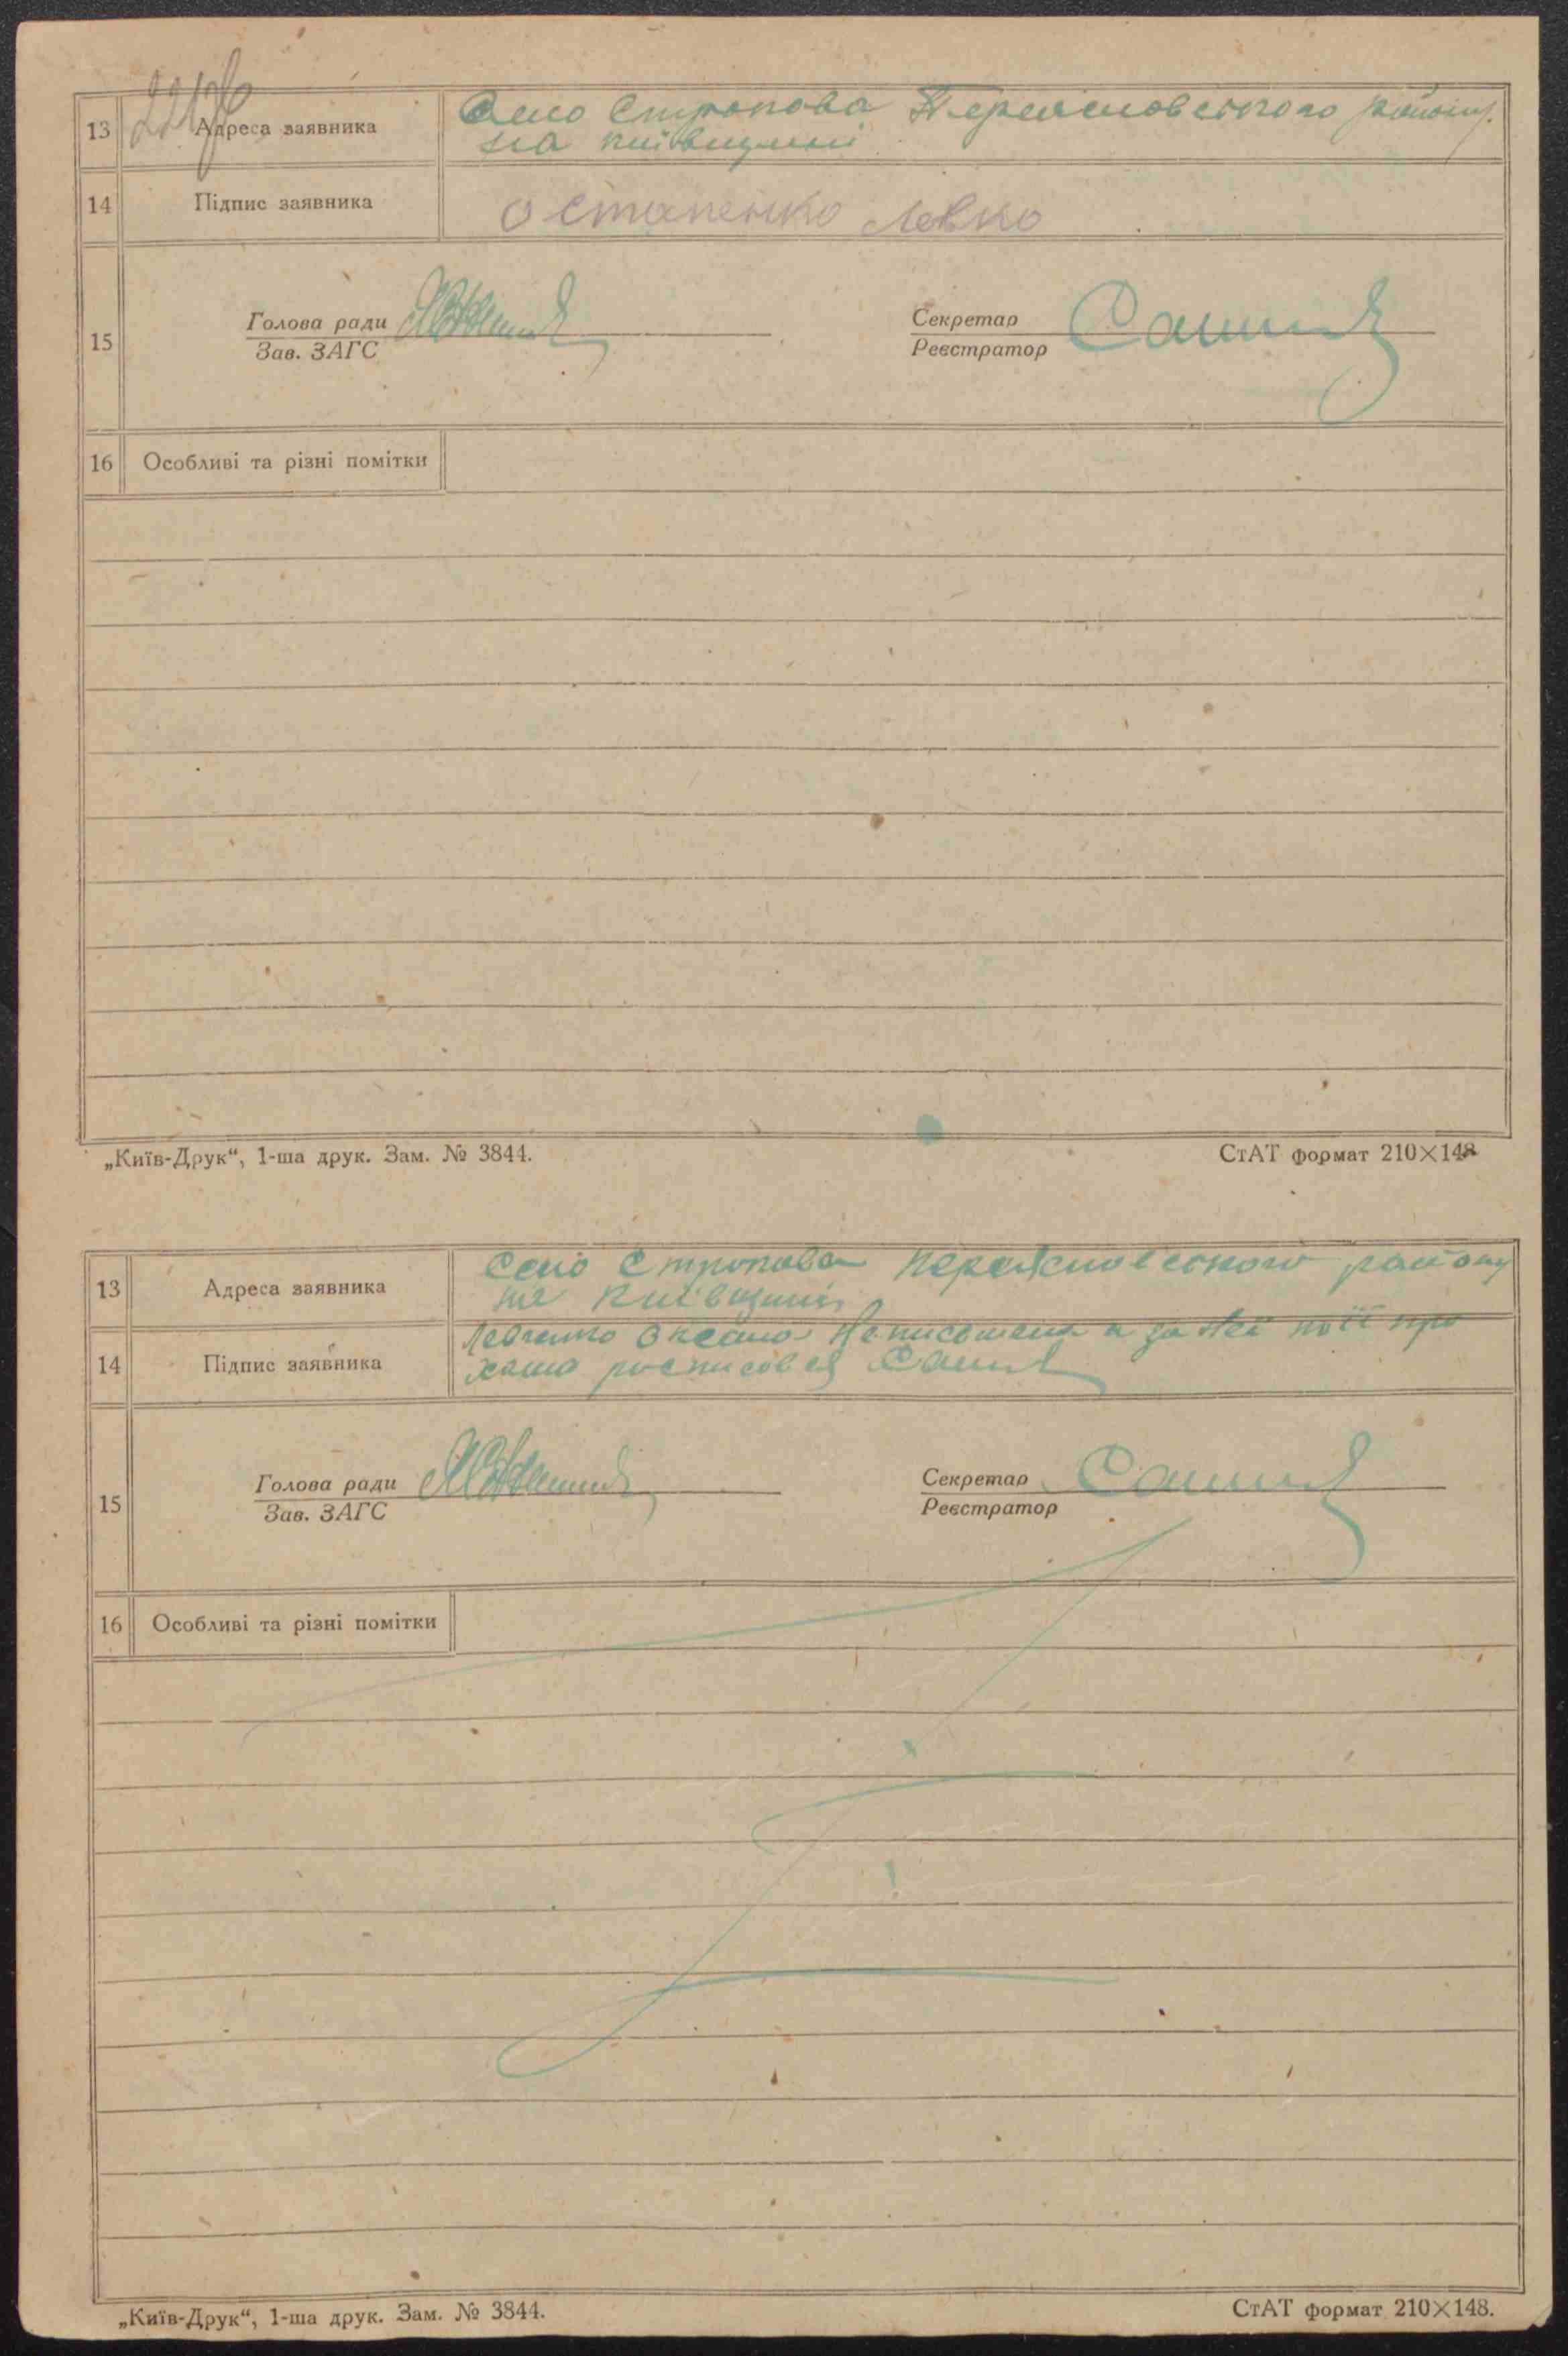 13 Адреса заявника Село Стропова Переяславського району
на Київщині
14 Підпис заявника Остапенко Левко
15 Голова ради Секретар
Зав. ЗАГС Реєстратор
16 Особливі та різні помітки
„Київ-Друк“, 1-ша друк. Зам. № 3844. СтАТ формат 210×148
13 Адреса заявника Село Стропова Переяславського району
на Київщині
14 Підпис заявника Оксана Неписьмена а за неї по її про
росписовся
15 Голова ради Секретар
Зав. ЗАГС Реєстратор
16 Особливі та різні помітки
„Київ-Друк“, 1-ша друк. Зам. № 3844. СтАТ формат 210×148.